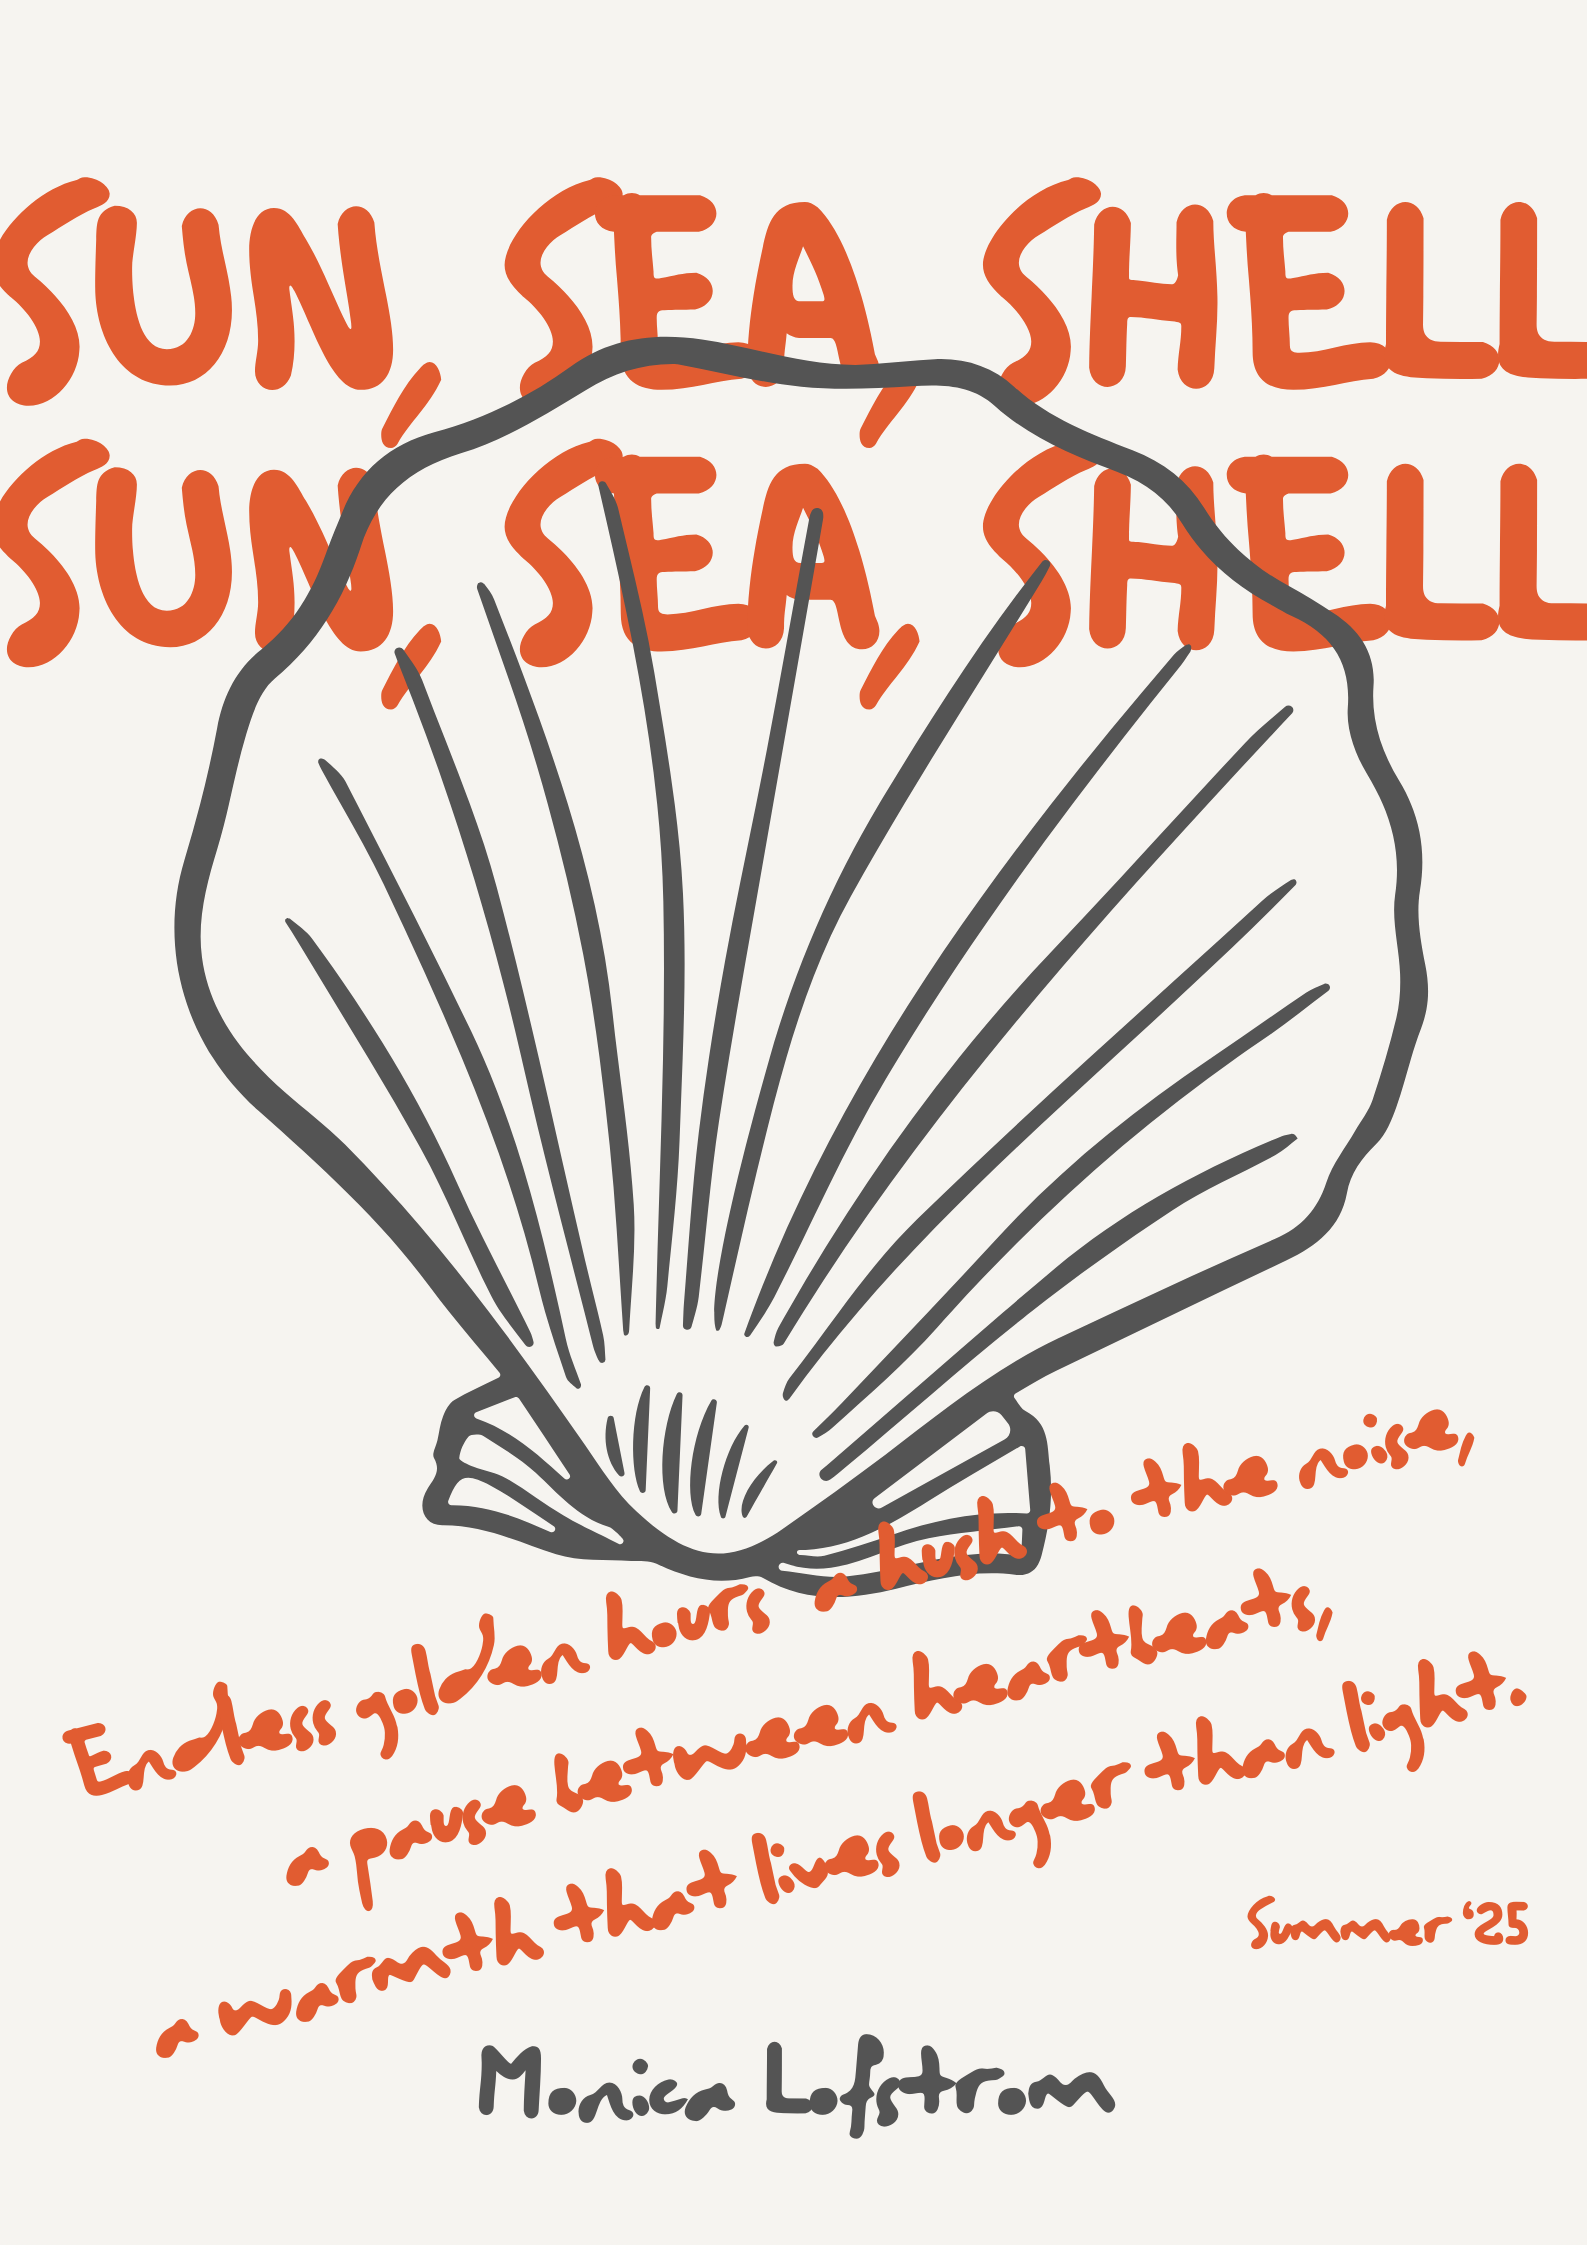 SUN, SEA, SHELL
SUN, SEA, SHELL
Endless golden hours a hush to the noise,
a pause between heartbeats,
a warmth that lives longer than light.
Summer '25
Monica Lofstrom